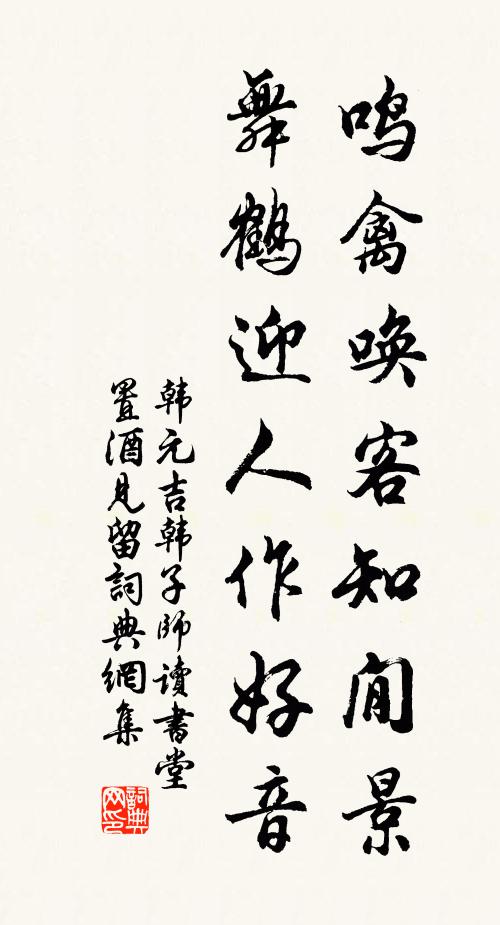 鸣禽唤客知闲景
舞鹤迎人作好音
韩元吉韩子师读書堂
置酒見留詞典網集
詞典網印